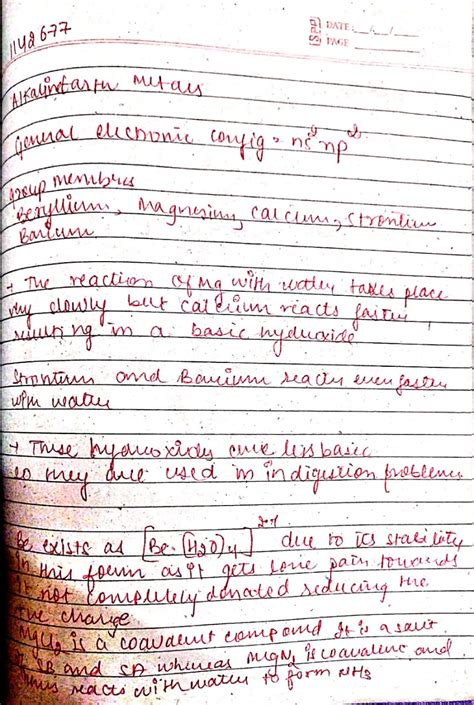 DATE: _/_/_
PAGE
1142677
Alkalinearth metals
General electronic config = ns² np²
Group members
Beryllium, Magnesium, calcium, Strontium
Barium
→ The reaction of Mg with water takes place
very slowly but calcium reacts faster,
resulting in a basic hydroxide
Strontium and Barium reacts even faster
with water
→ These hydroxides are less basic
so they are used in indigestion problems
Be exists as [Be.(H2O)4]²⁺ due to its stability
in this form as it gets lone pair towards
it not completely donated reducing the
+ve charge
MgCl2 is a covalent compound It is a salt
of SB and SA whereas MgN2 is covalent and
thus reacts with water to form NH3